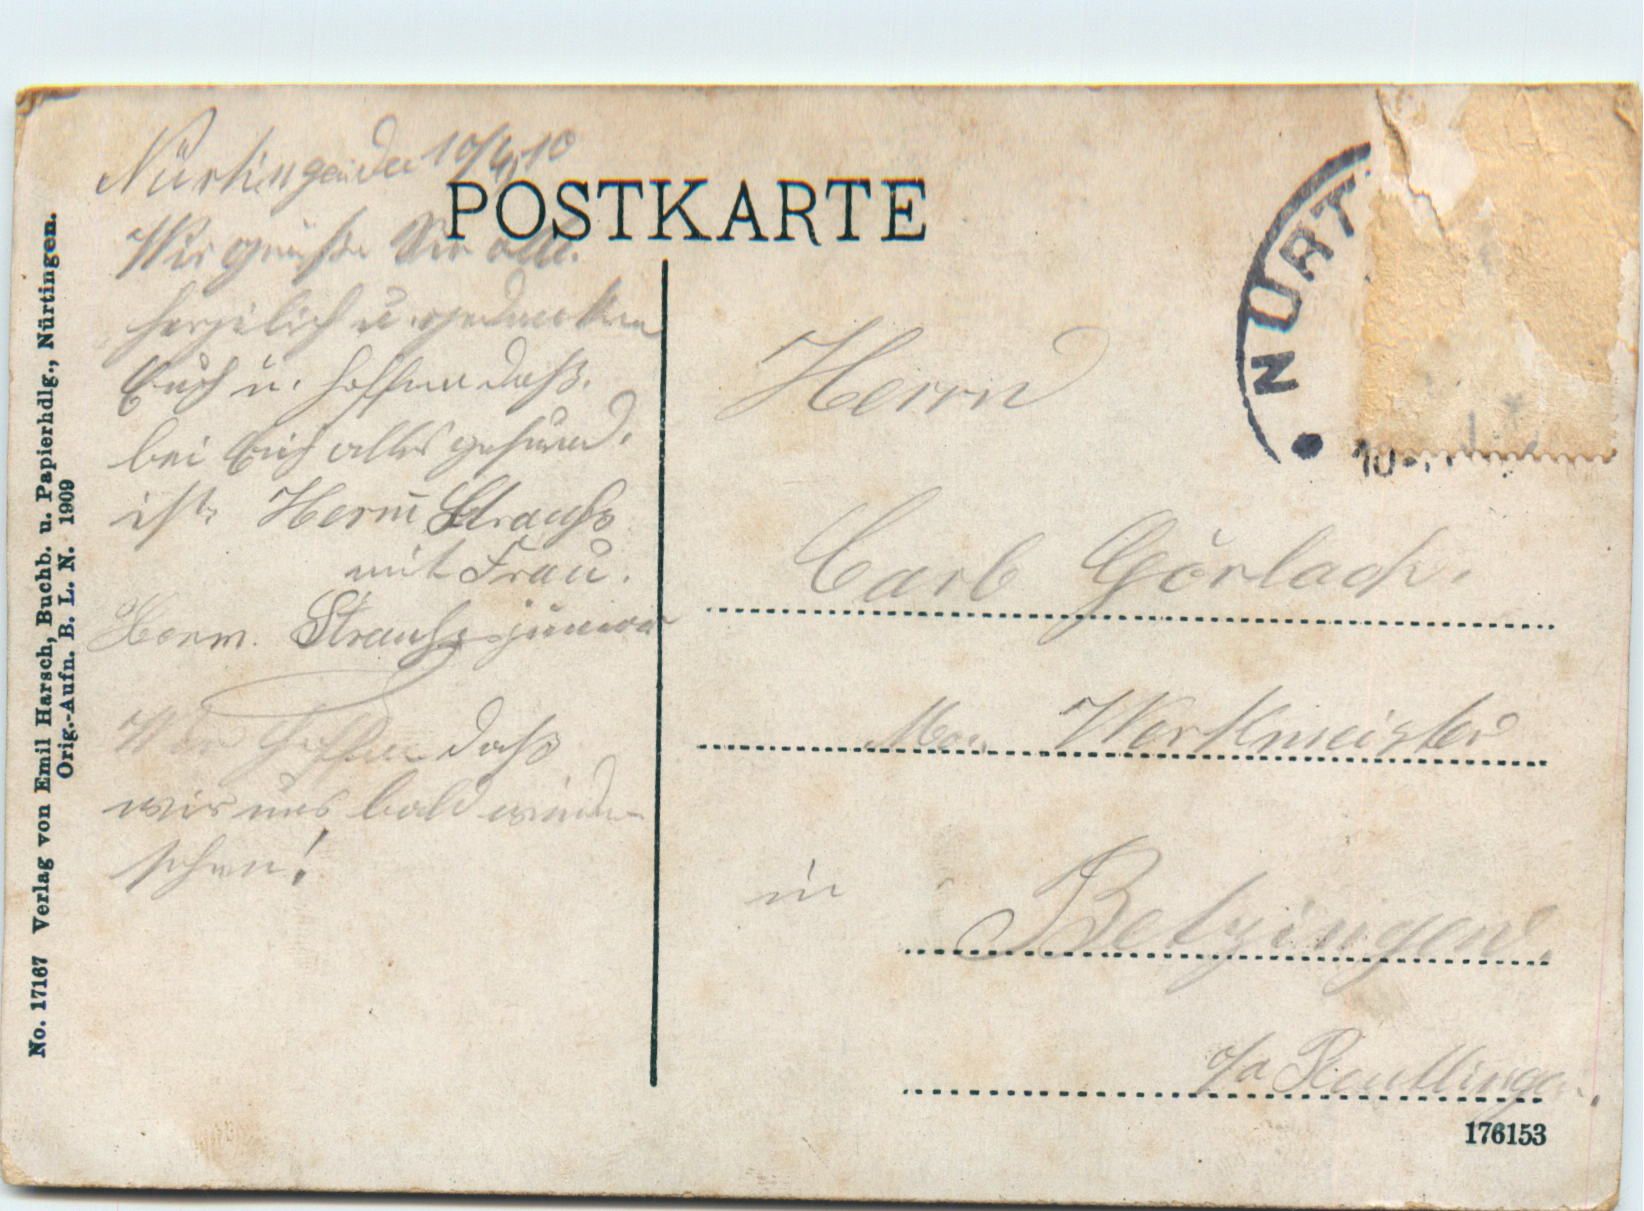 Nürtingen den 10/4 10
POSTKARTE
Wir grüßen Sie alle
herzlich u. gedenken
Euch u. hoffen daß.
bei Euch alles gesund.
ist. Herm Strauß
mit Frau.
Herm. Strauß junior
Wir hoffen daß
wir uns bald wieder
sehen!
NÜRT
Herrn
Carl Görlach.
Werkmeister
in Betzingen.
o/a Reutlingen.
176153
No. 17167 Verlag von Emil Harsch, Buchb. u. Papierhdlg., Nürtingen.
Orig.-Aufn. B. L. N. 1909